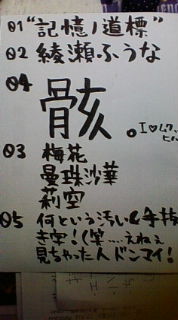 01 “記憶ノ道標”
02 綾瀬ふうな
04
骸。
I♡
03 梅花
曼珠沙華
莉空
05 何という汚い&手抜
き字!(笑……えねぇ
見ちゃった人ドンマイ!